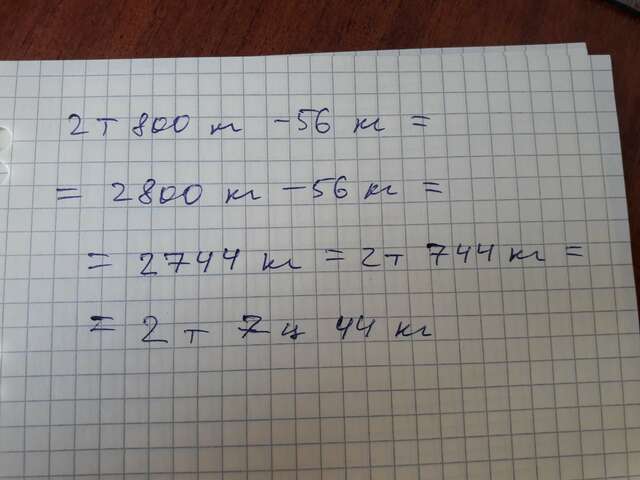 2т 800 кг - 56 кг =
= 2800 кг - 56 кг =
= 2744 кг = 2т 744 кг =
= 2 т 7 ц 44 кг